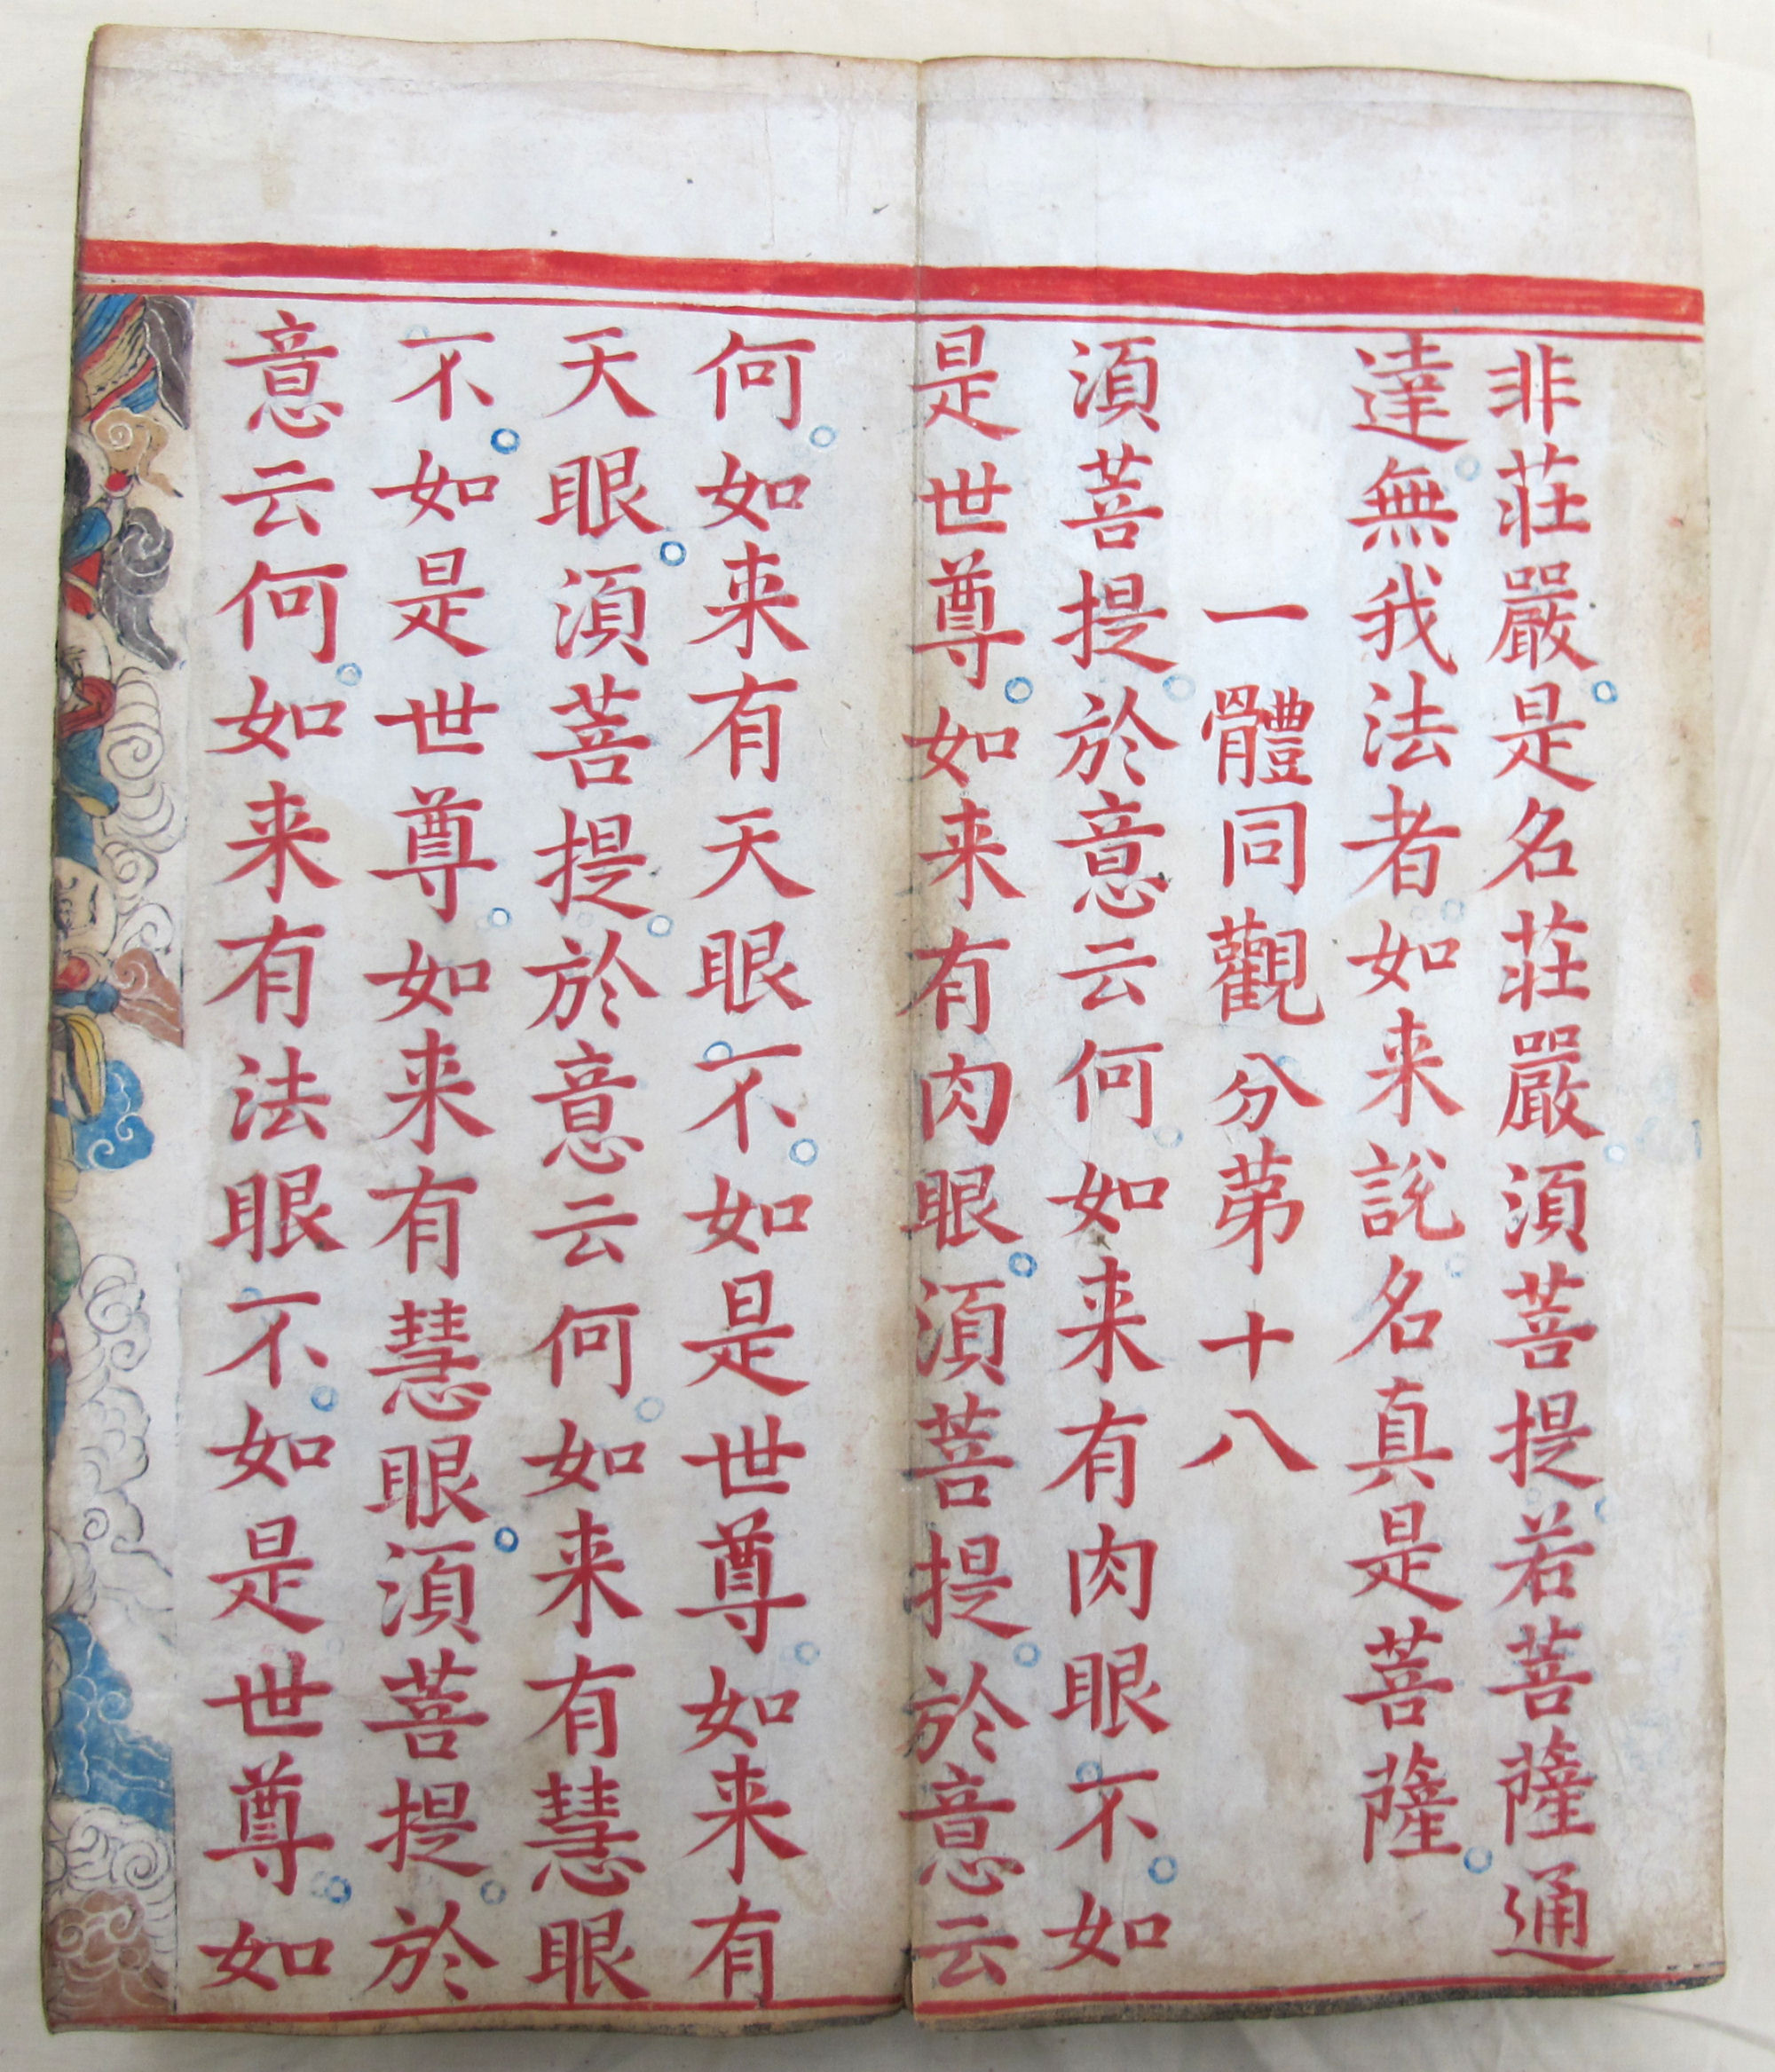 非莊嚴。是名莊嚴。須菩提。若菩薩通
達無我法者。如来說名真是菩薩。
一體同觀分苐十八
須菩提。於意云何。如来有肉眼不。如
是世尊。如来有肉眼。須菩提。於意云
何。如来有天眼不。如是世尊。如来有
天眼。須菩提。於意云何。如来有慧眼
不。如是世尊。如来有慧眼。須菩提。於
意云何。如来有法眼不。如是世尊。如